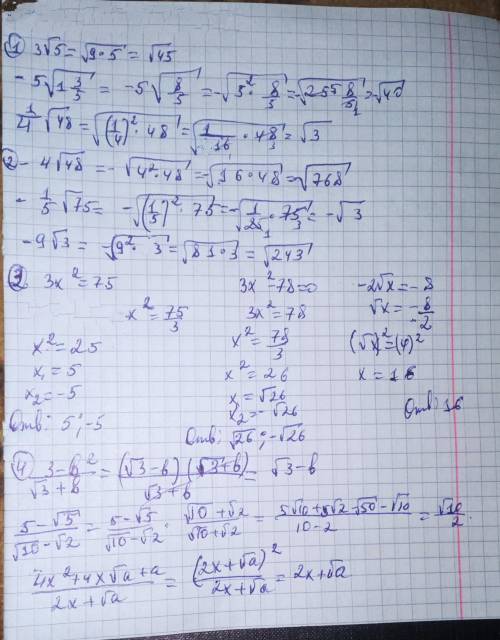 1) 3√5 = √9·5 = √45
- 5√1 3/5 = -5√8/5 = -√5²· 8/5 = -√25 · 8/5 = √40
1/4 √48 = √(1/4)² · 48 = √1/16 · 48 = √3
2) - 4√48 = - √4²·48 = -√16·48 = √768
- 1/5 √75 = -√(1/5)²· 75 = -√1/25 · 75 = -√3
- 9√3 = -√9²· 3 = √81·3 = √243
3) 3x² = 75
x² = 75/3
x² = 25
x₁ = 5
x₂ = -5
Отв: 5; -5
3x² - 78 = 0
3x² = 78
x² = 78/3
x² = 26
x₁ = √26
x₂ = -√26
Отв: √26; -√26
-2√x = -8
√x = -8/-2
(√x)² = (4)²
x = 16
Отв: 16
4) 3 - b²/√3 + b = (√3 - b)(√3 + b)/√3 + b = √3 - b
5 - √5/√10 - √2 = 5 - √5/√10 - √2 · √10 + √2/√10 + √2 = 5√10 + 5√2 - √50 - √10/10 - 2 = √10/2
4x² + 4x√a + a/2x + √a = (2x + √a)²/2x + √a = 2x + √a